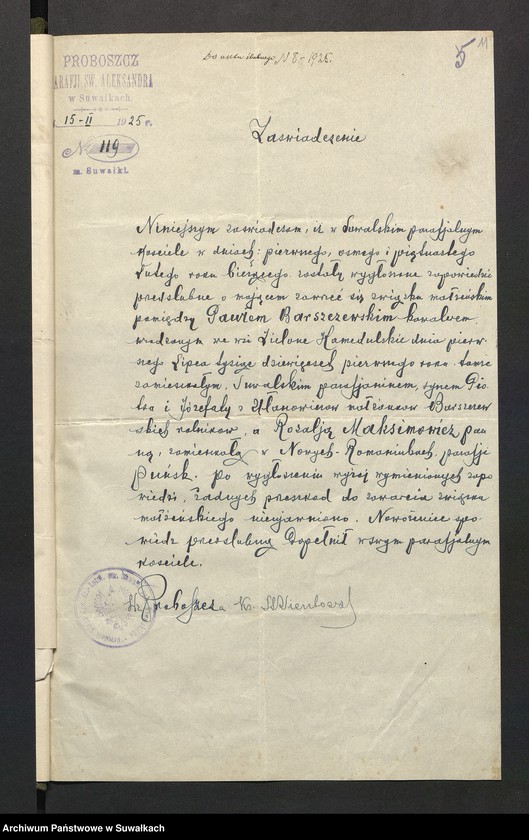 Do aktu ślubnego N 8 – 1925.
5
11
PROBOSZCZ
PARAFJI ŚW. ALEKSANDRA
w Suwałkach.
15-II 1925 r.
№ 119
m. Suwałki.
Zaświadczenie
Niniejszym zaświadczam, iż w Suwalskim parafjalnym
Kościele w dniach: pierwszego, ósmego i piętnastego
Lutego roku bieżącego zostały wygłoszone zapowiedzie
przedślubne o mającem zawrzeć się związku małżeńskim
pomiędzy Pawłem Barszczewskim kawalerem,
urodzonym we wsi Zielone Kamedulskie dnia pierw-
szego Lipca tysiąc dziewięćset pierwszego roku tamże
zamieszkałym, Suwalskim parafjaninem, synem Pio-
tra i Józefaty z Ułanowiczów małżonków Barszczew-
skich rolników, a Rozalją Maksimowicz pan-
ną, zamieszkałą w Nowych-Romaniukach, parafji
Puńsk. Po wygłoszeniu wyżej wymienionych zapo-
wiedzi, żadnych przeszkód do zawarcia związku
małżeńskiego nieujawniono. Narzeczony spo-
wiedź przedślubną dopełnił w swym parafjalnym
kościele.
Proboszcz Ks.
Archiwum Państwowe w Suwałkach